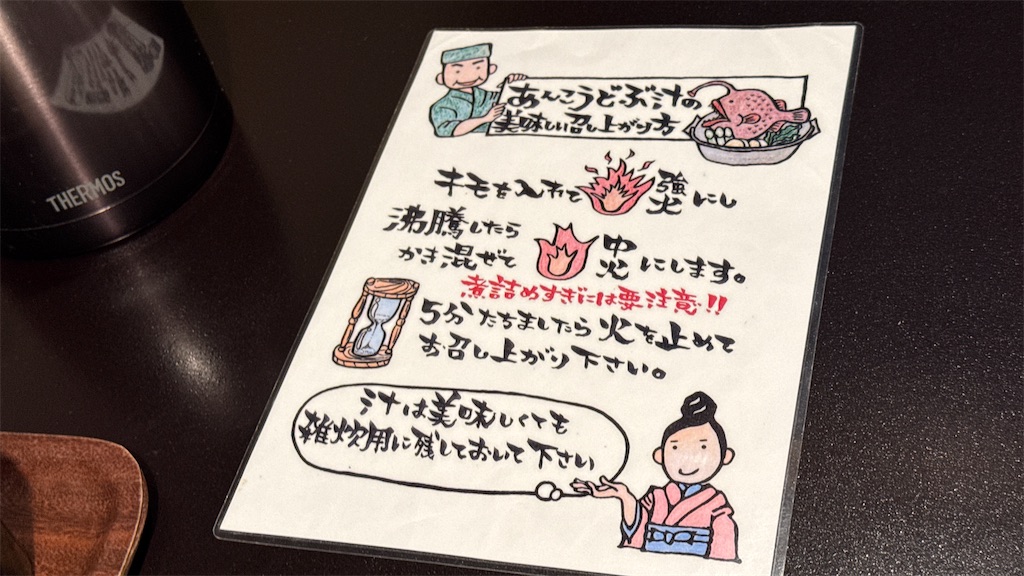 THERMOS
あんこうどぶ汁の
美味しい召し上がり方
キモを入れて強火にし
沸騰したら
かき混ぜて中火にします。
煮詰めすぎには要注意!!
5分たちましたら火を止めて
お召し上がり下さい。
汁は美味しくても
雑炊用に残しておいて下さい